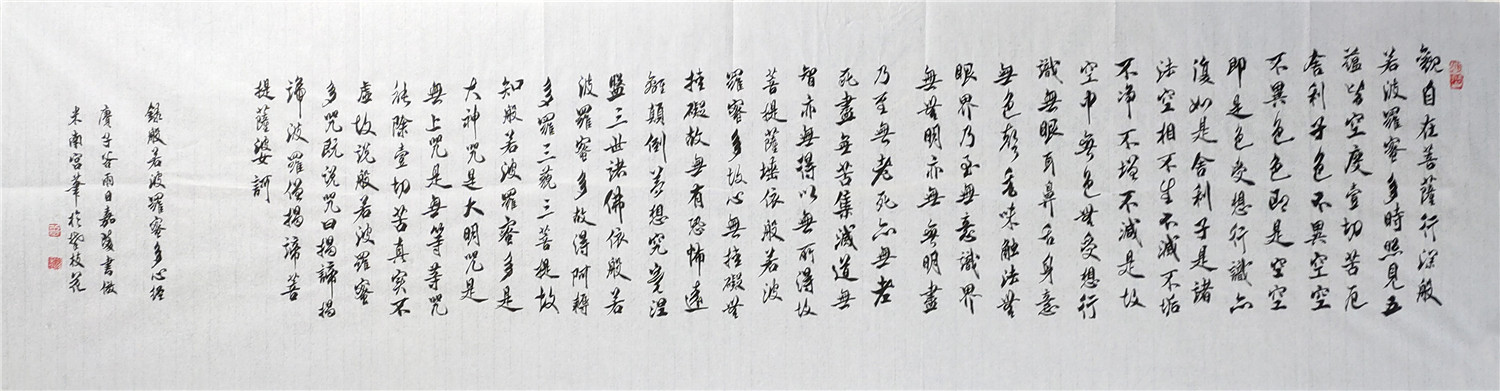 觀自在菩薩行深般
若波羅蜜多時照見五
蘊皆空度壹切苦厄
舍利子色不異空空
不異色色即是空空
即是色受想行識亦
復如是舍利子是諸
法空相不生不滅不垢
不净不增不減是故
空中無色無受想行
識無眼耳鼻舌身意
無色聲香味觸法無
眼界乃至無意識界
無無明亦無無明盡
乃至無老死亦無老
死盡無苦集滅道無
智亦無得以無所得故
菩提薩埵依般若波
羅蜜多故心無挂礙無
挂礙故無有恐怖遠
離顛倒夢想究竟涅
盤三世諸佛依般若
波羅蜜多故得阿耨
多羅三藐三菩提故
知般若波羅蜜多是
大神咒是大明咒是
無上咒是無等等咒
能除壹切苦真实不
虛故说般若波羅蜜
多咒既说咒曰揭諦揭
諦波羅僧揭諦菩
提薩婆訶
錄般若波羅蜜多心經
庚子谷雨日嘉書倣
米南宮筆於枝花